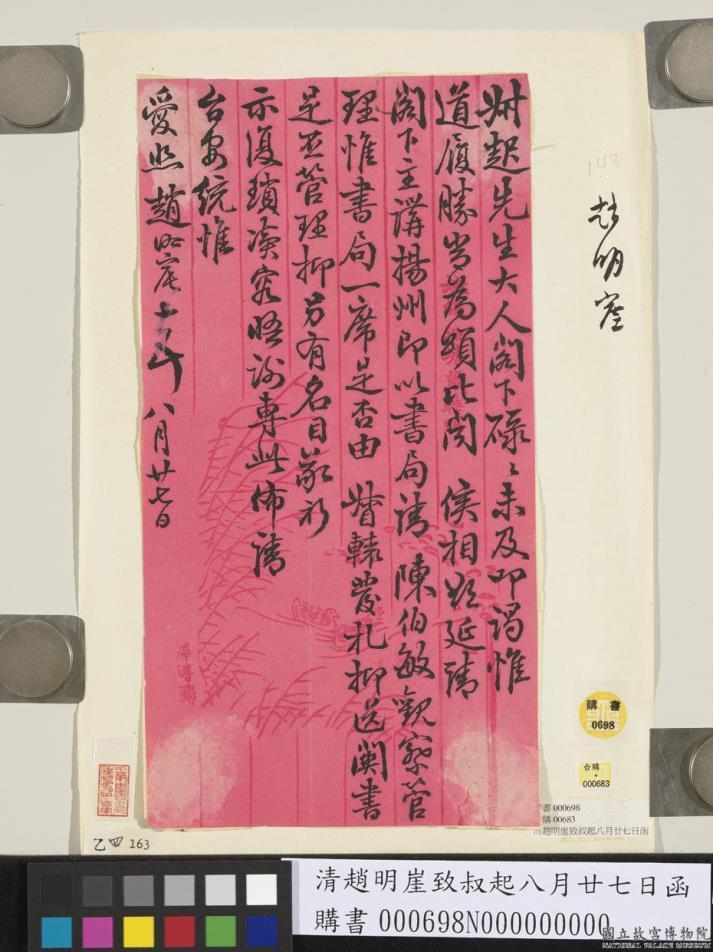 叔起先生大人閣下碌〻未及叩謁惟
道履勝常為頌比聞 侯相欲延請
閣下主講揚州即以書局請 陳伯敏觀察管
理惟書局一席是否由 督轅發札抑送關書
是否管理抑另有名目敬祈
示復瑣凟容晤謝專此佈請
台安統惟
愛照趙明崖 八月廿七日
趙明崖
143
購書
0698
台購
000683
書 000698
購 00683
清趙明崖致叔起八月廿七日函
乙四 163
清趙明崖致叔起八月廿七日函
購書 000698N000000000
國立故宮博物院
NATIONAL PALACE MUSEUM